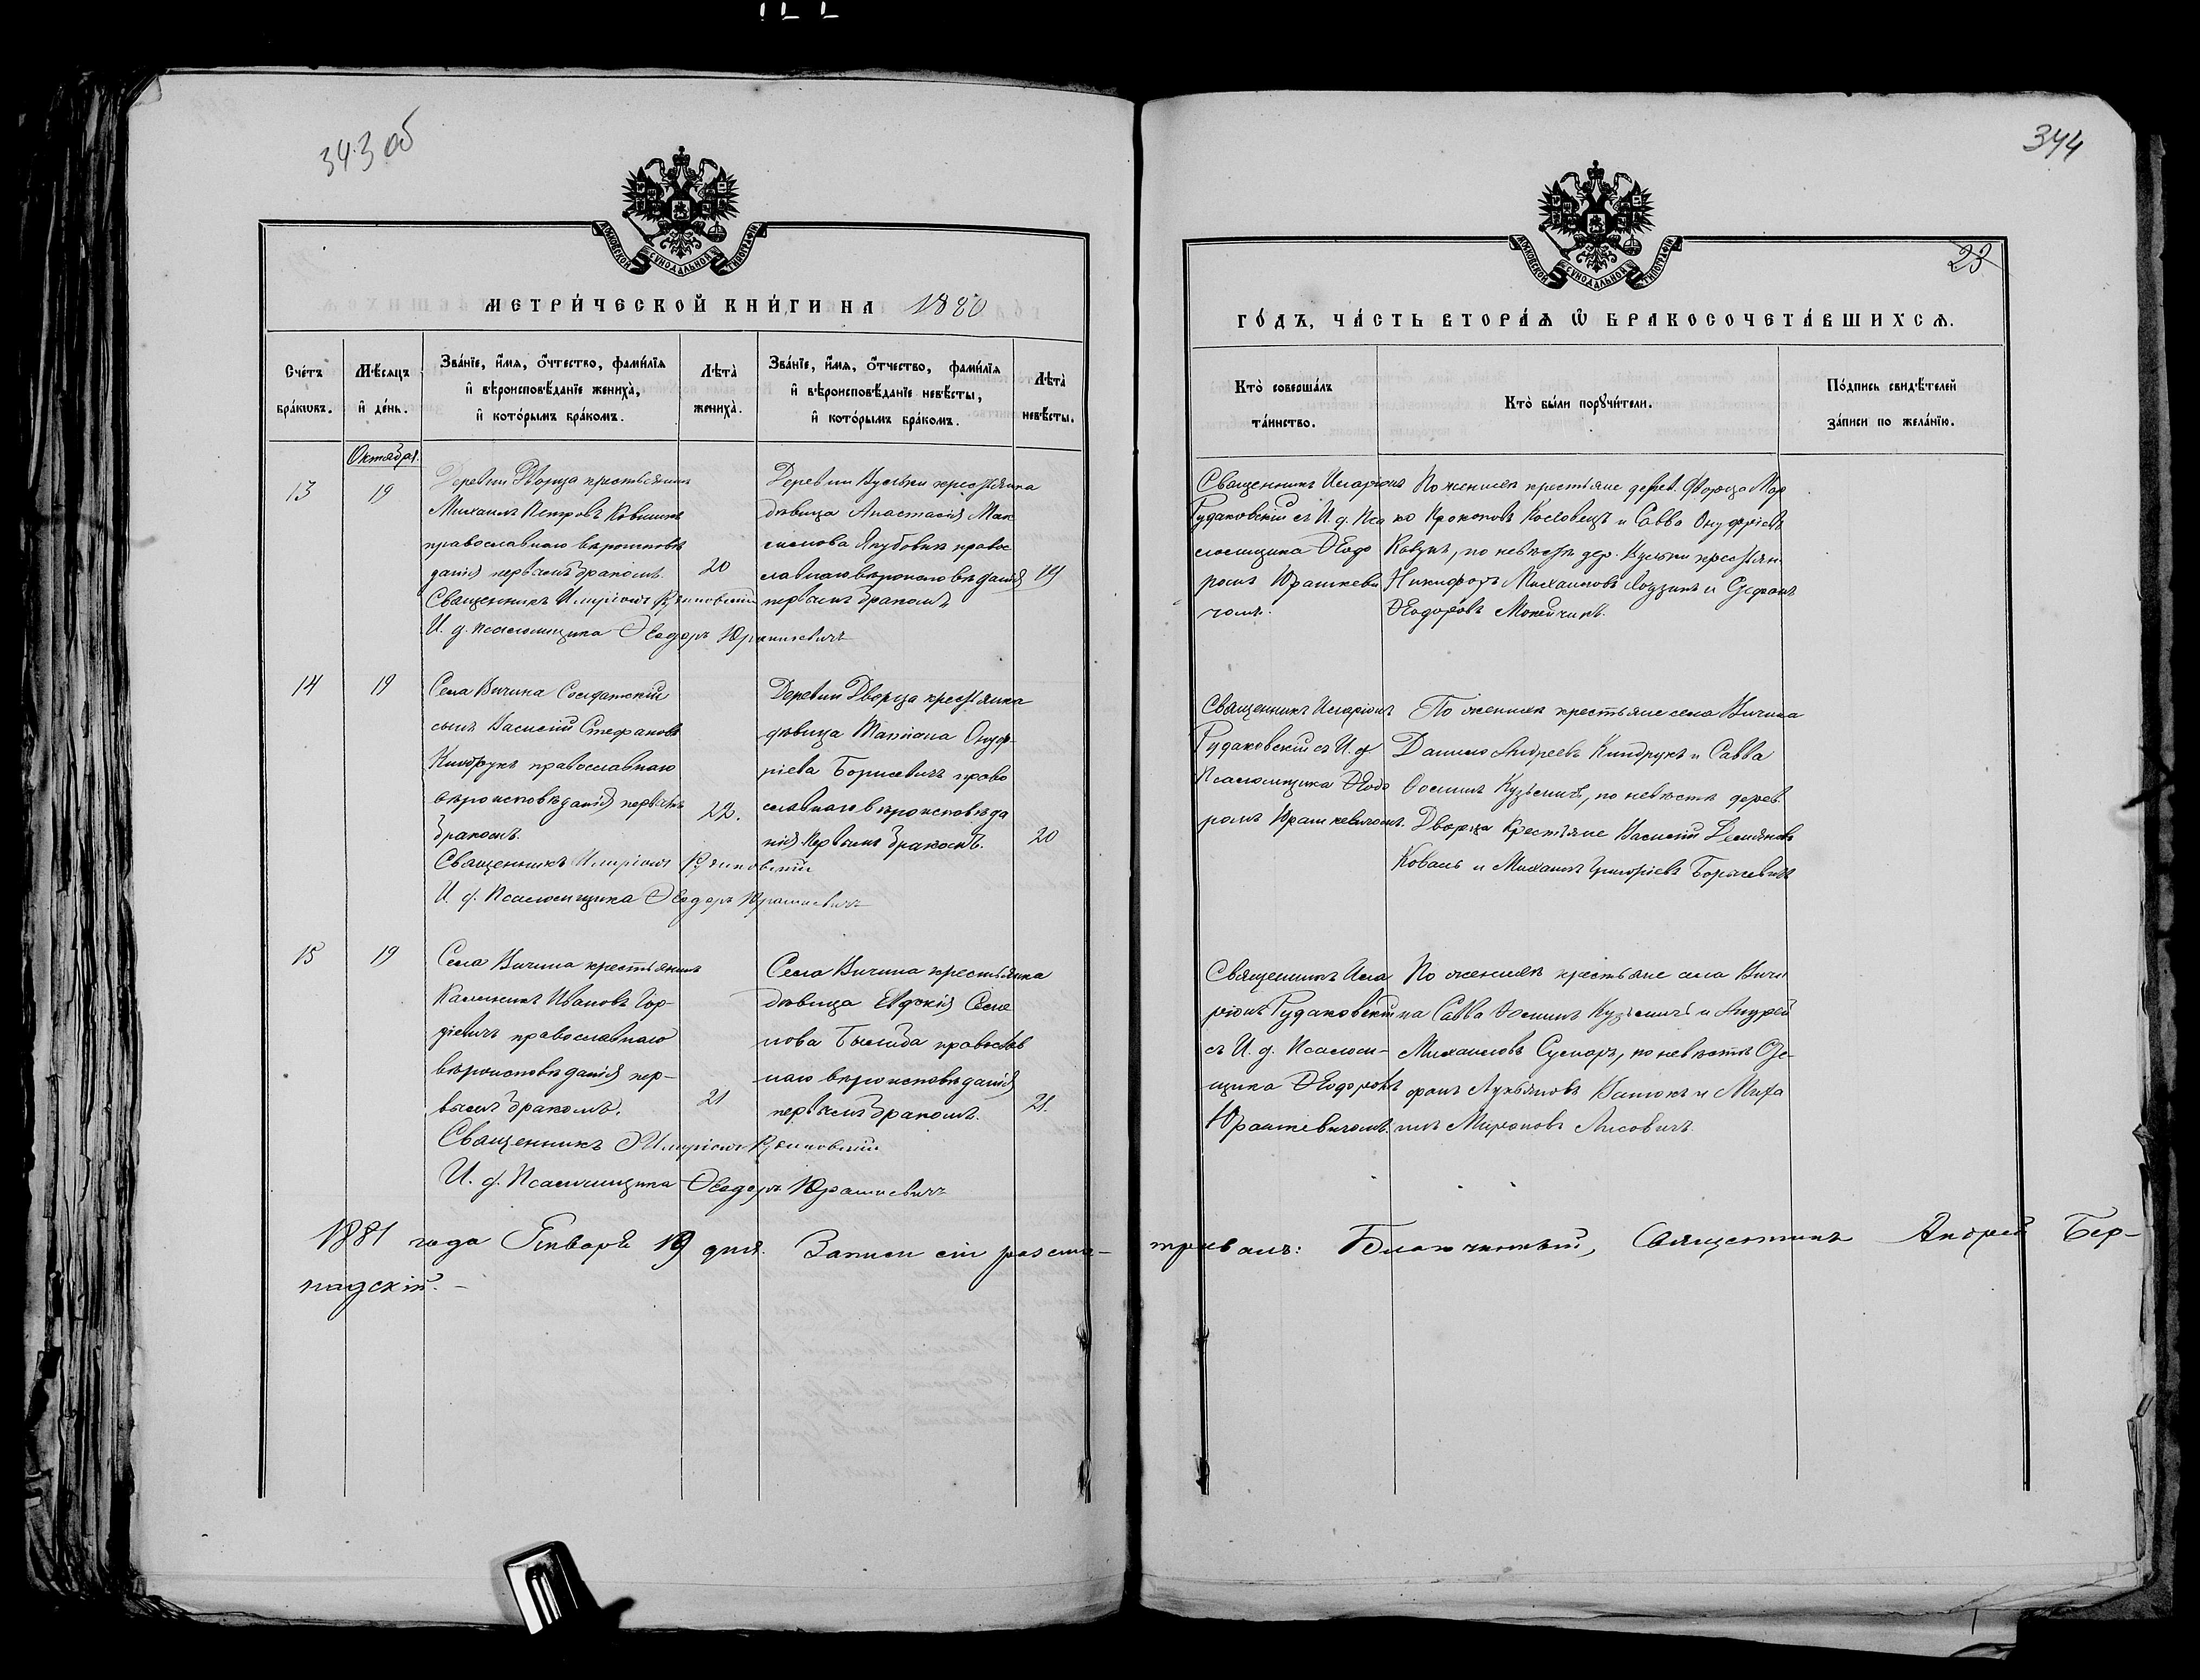 343 об
МОСКОВСКОЙ СѴНОДАЛЬНОЙ ТИПОГРАФІИ
МЕТРИ́ЧЕСКОЙ КНИ́ГИ НА 1880
Сче́тъ бра́кωвъ.
Мѣ́сяцъ и҆ де́нь.
Зва́нїе, и҆́мя, ѻ҆́тчество, фамѝлїя и҆ вѣроисповѣ́данїе жениха̀, и҆ кото́рымъ бра́комъ.
Лѣта̀ жениха̀.
Зва́нїе, и҆́мя, ѻ҆́тчество, фамѝлїя и҆ вѣроисповѣ́данїе невѣ́сты, и҆ кото́рымъ бра́комъ.
Лѣта̀ невѣ́сты.
Октября
13
19
Деревни Дворца крестьянинъ
Михаилъ Петровъ
православнаго вѣроисповѣ
данія первымъ бракомъ.
20
Священникъ Иларіонъ Рудаковскій
И. д. псаломщика Ѳеодоръ Юрашкевичъ
Деревни крестьянка
дѣвица Анастасія Мак
симова Якубовик правос
лавнаго вѣроисповѣданія
первымъ бракомъ
19
14
19
Села Вичина Солдатскій
сынъ Василій Стефановъ
Киндрукъ православнаго
вѣроисповѣданія первымъ
бракомъ.
22.
Священникъ Иларіонъ Рудаковскій
И. д. Псаломщика Ѳеодоръ Юрашкевичъ
Деревни Дворца крестьянка
дѣвица Татіана Онуф-
ріева Борисевичъ право
славнаго вѣроисповѣда
нія первымъ бракомъ.
20
15
19
Села Вичина крестьянинъ
Каленикъ Ивановъ Гор-
дѣевичъ православнаго
вѣроисповѣданія пер-
вымъ бракомъ.
21
Священникъ Иларіонъ Рудаковскій
И. д. Псаломщика Ѳеодоръ Юрашкевичъ
Села Вичина крестьянка
дѣвица Евдокія Семе
нова православ
наго вѣроисповѣданія
первымъ бракомъ.
21.
1881 года Января 19 дня. Записи сіи разсма-
падскій.
344
23
МОСКОВСКОЙ СѴНОДАЛЬНОЙ ТИПОГРАФІИ
ГО́ДЪ, ЧА́СТЬ ВТОРА́Я Ѽ БРАКОСОЧЕТА́ВШИХСЯ.
Кто̀ соверша́лъ та́инство.
Кто̀ бы́ли порꙋчи́тели.
По́дпись свидѣ́телей за́писи по жела́нїю.
Священникъ Иларіонъ
Рудаковскій съ И. д. Пса
ломщика Ѳеодо
ромъ Юрашкеви
чомъ.
По женихѣ крестьяне дерев. Дворца Мар
ко Прокоповъ и Савва Онуфріевъ
Ковзикъ, по невѣстѣ дер. крестьян.
Никифоръ Михаиловъ и Стефанъ
Ѳеодоровъ Мокейчикъ.
Священникъ Иларіонъ
Рудаковскій съ И. д
Псаломщика Ѳеодо
ромъ Юрашкевичомъ.
По женихѣ крестьяне села Вичина
Данило Андреевъ Киндрукъ и Савва
Ѳоминъ Кузьмичъ, по невѣстѣ дерев.
Дворца Крестьяне Василій Демяновъ
Коваль и Михаилъ Григоріевъ Борисевичъ
Священникъ Ила
ріонъ Рудаковскій
съ И. д. Псалом-
щика Ѳеодоромъ
Юрашкевичомъ.
По женихѣ крестьяне села Вичи
на Савва Ѳоминъ Кузьмичъ и Андрей
Михаиловъ по невѣстѣ Сте-
фанъ Лукьяновъ и Миха
илъ Мироновъ Лисовичъ.
тривалъ: Благочинный, Священникъ Андрей Бер-